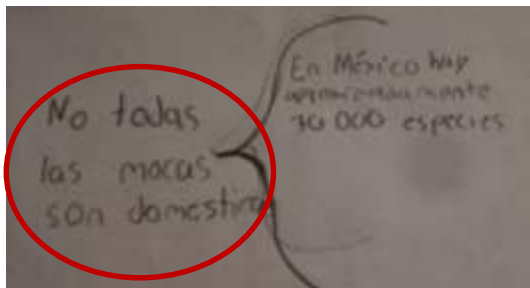 No todas
las mocas
son domestica
En México hay
aproximadamente
30 000 especies